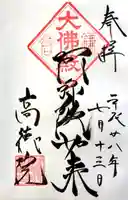 奉拝
平成廿八年
七月十三日
大佛殿
阿弥陀如来
高徳院